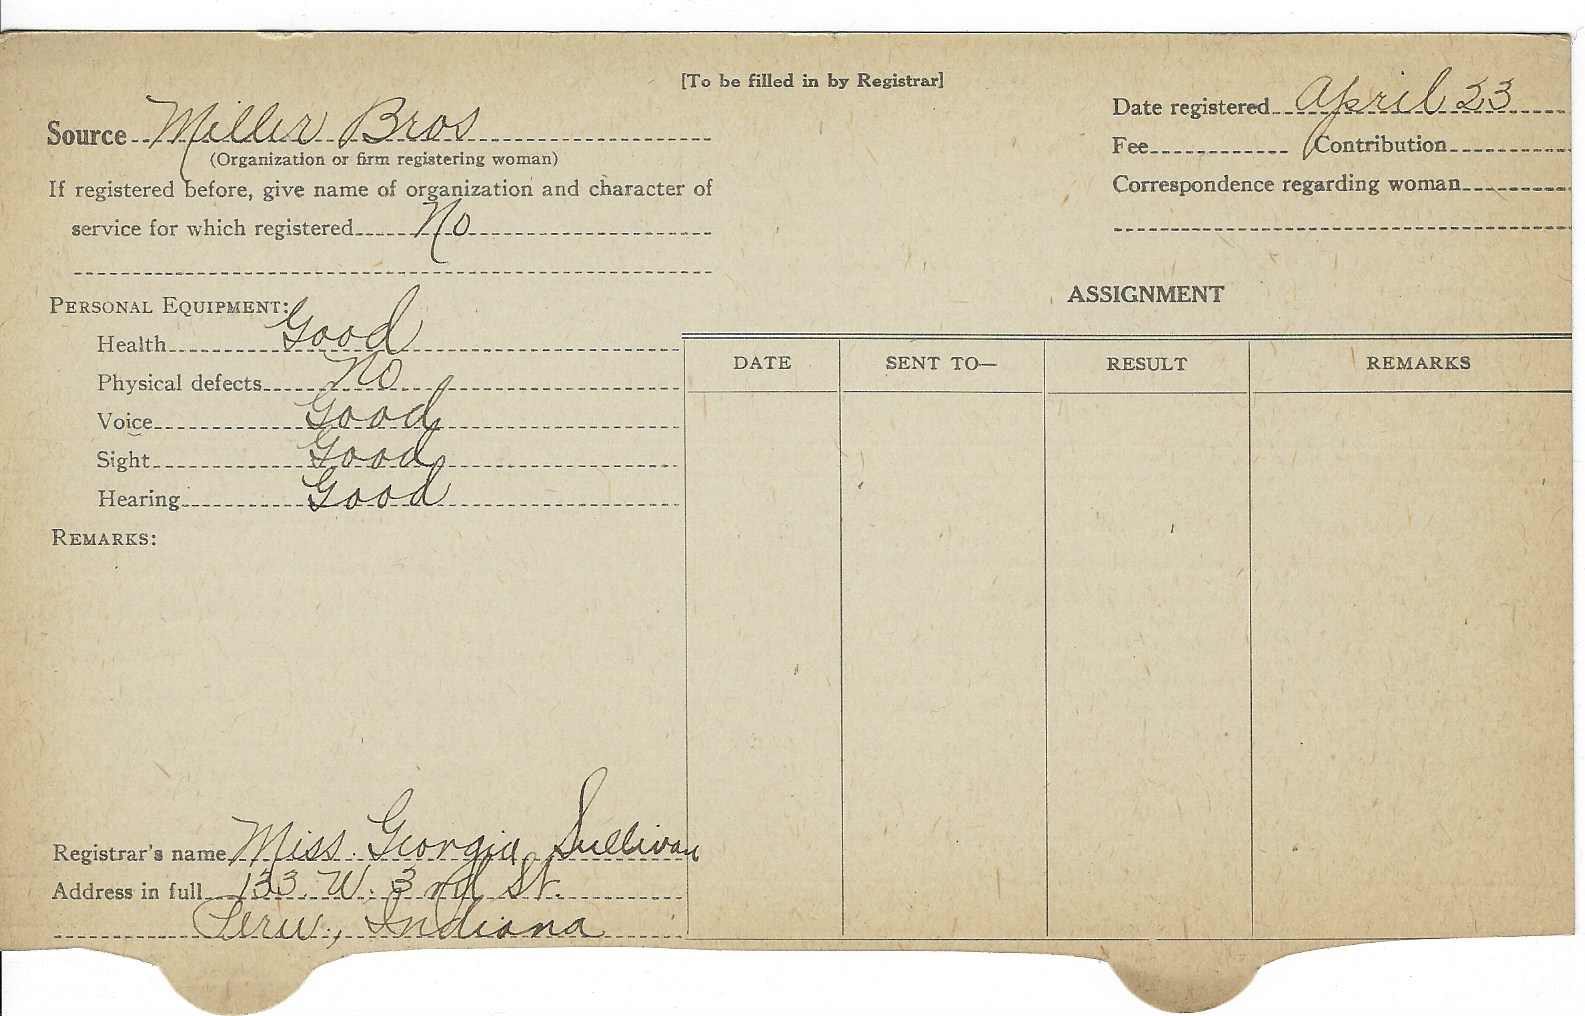 [To be filled in by Registrar]
Source Miller Bros
(Organization or firm registering woman)
If registered before, give name of organization and character of
service for which registered No
Date registered April 23
Fee Contribution
Correspondence regarding woman
PERSONAL EQUIPMENT:
Health Good
Physical defects No
Voice Good
Sight Good
Hearing Good
REMARKS:
ASSIGNMENT
DATE SENT TO— RESULT REMARKS
Registrar's name Miss. Georgia Sullivan
Address in full 133. W. 3rd St.
Peru, Indiana